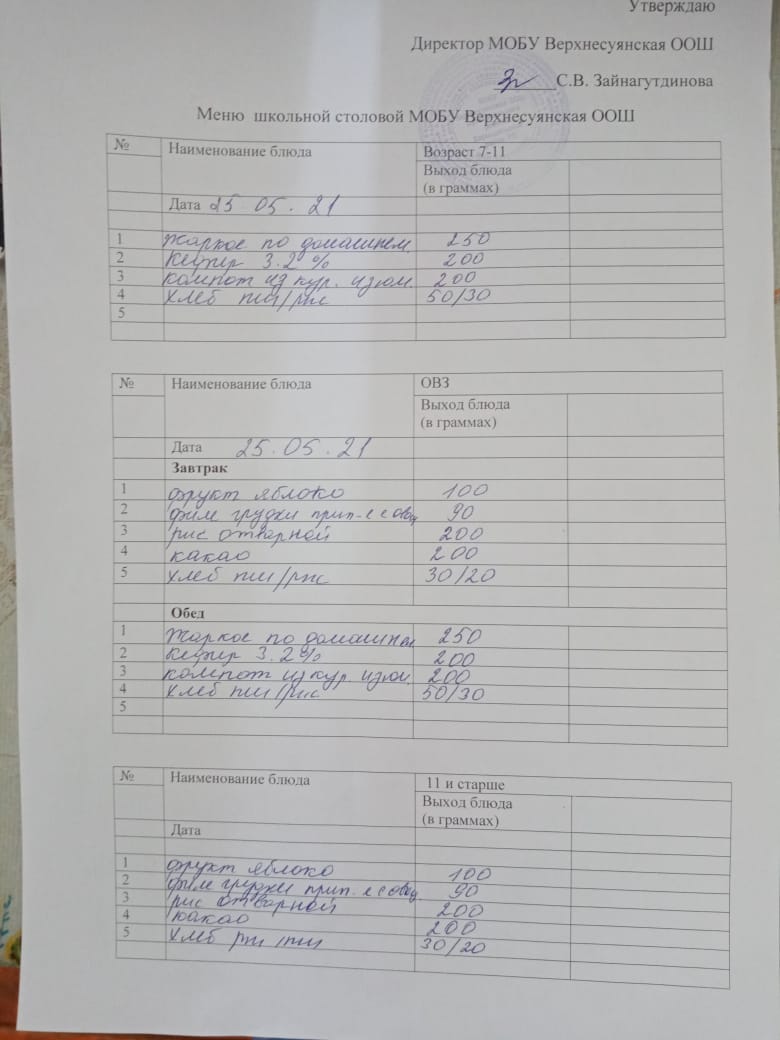 Утверждаю
Директор МОБУ Верхнесуянская ООШ
С.В. Зайнагутдинова
Меню школьной столовой МОБУ Верхнесуянская ООШ
№ Наименование блюда Возраст 7-11
Выход блюда
(в граммах)
Дата 25.05.21
1 Жаркое по домашнем. 250
2 Кефир 3.2% 200
3 компот из кур. изюм. 200
4 Хлеб пш/рж 50/30
5
№ Наименование блюда ОВЗ
Выход блюда
(в граммах)
Дата 25.05.21
Завтрак
1 фрукт яблоко 100
2 филе грудки прип-е с овощ 90
3 рис отварной 200
4 какао 200
5 хлеб пш/рж 30/20
Обед
1 Жаркое по домашнем 250
2 Кефир 3.2% 200
3 компот из кур. изюм. 200
4 Хлеб пш/рж 50/30
5
№ Наименование блюда 11 и старше
Выход блюда
(в граммах)
Дата
1 фрукт яблоко 100
2 филе грудки прип. е с овощ. 90
3 рис отварной 200
4 какао 200
5 хлеб рж/пш 30/20